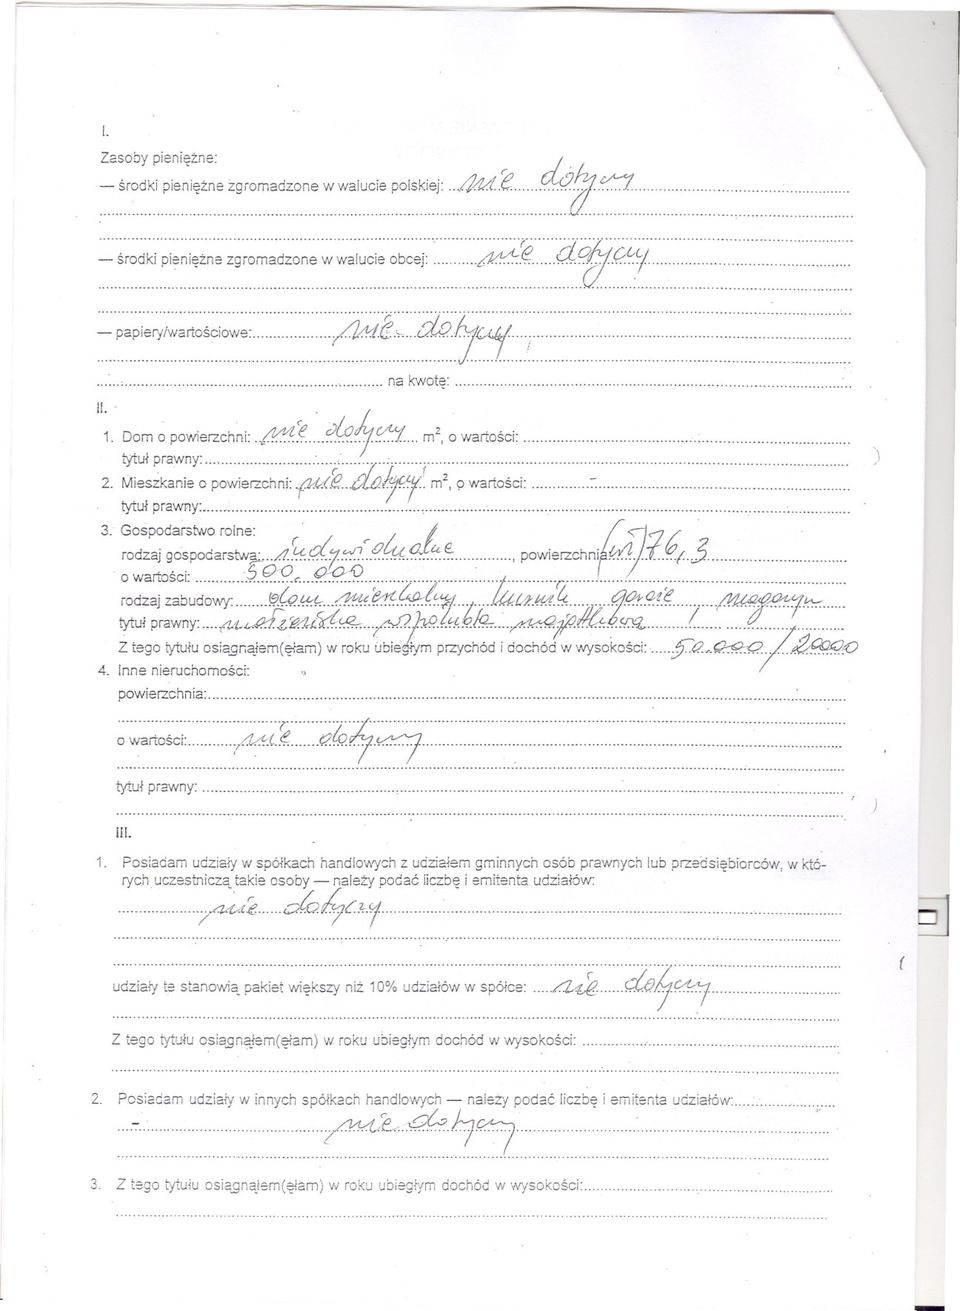 I.
Zasoby pieniężne:
— środki pieniężne zgromadzone w walucie polskiej: nie dotyczy
— środki pieniężne zgromadzone w walucie obcej: nie dotyczy
— papiery/wartościowe: nie dotyczy
na kwotę:
II.
1. Dom o powierzchni: nie dotyczy m², o wartości:
tytuł prawny:
2. Mieszkanie o powierzchni: nie dotyczy m², o wartości: -
tytuł prawny:
3. Gospodarstwo rolne:
rodzaj gospodarstwa: indywidualne, powierzchnia: 76,3
o wartości: 500.000
rodzaj zabudowy: dom mieszkalny, kurnik garaże magazyn
tytuł prawny: małżeńska wspólnota majątkowa
Z tego tytułu osiągnąłem(ęłam) w roku ubiegłym przychód i dochód w wysokości: 50.000 / 20000
4. Inne nieruchomości:
powierzchnia:
o wartości: nie dotyczy
tytuł prawny:
III.
1. Posiadam udziały w spółkach handlowych z udziałem gminnych osób prawnych lub przedsiębiorców, w któ-
rych uczestniczą takie osoby — należy podać liczbę i emitenta udziałów:
nie dotyczy
udziały te stanowią pakiet większy niż 10% udziałów w spółce: nie dotyczy
Z tego tytułu osiągnąłem(ęłam) w roku ubiegłym dochód w wysokości:
2. Posiadam udziały w innych spółkach handlowych — należy podać liczbę i emitenta udziałów:
- nie dotyczy
3. Z tego tytułu osiągnąłem(ęłam) w roku ubiegłym dochód w wysokości: